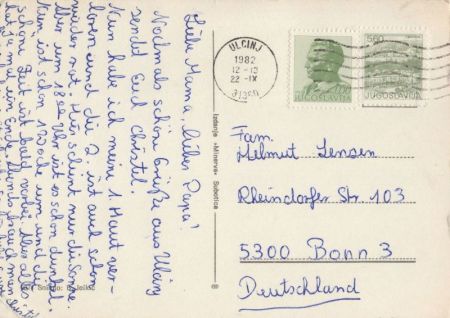 Liebe Mama, lieber Papa!
Nochmals schöne Grüße aus Ulcinj
sendet Euch Christel.
Nun habe ich meine 1. Haut ver-
loren und die 2. ist auch schon
wieder rot. Hier scheint nur die Sonne.
Aber um 18°° Uhr ist es schon dunkel.
Nun ist schon 120. und die
schöne Zeit ist bald vorbei. Aber alles
hat ja mal ein Ende.
Izdanje »Minerva« Subotica
ULCINJ
1982
22-IX
JUGOSLAVIJA
5.60
JUGOSLAVIJA
Fam.
Helmut Jensen
Rheindorfer Str. 103
5300 Bonn 3
Deutschland